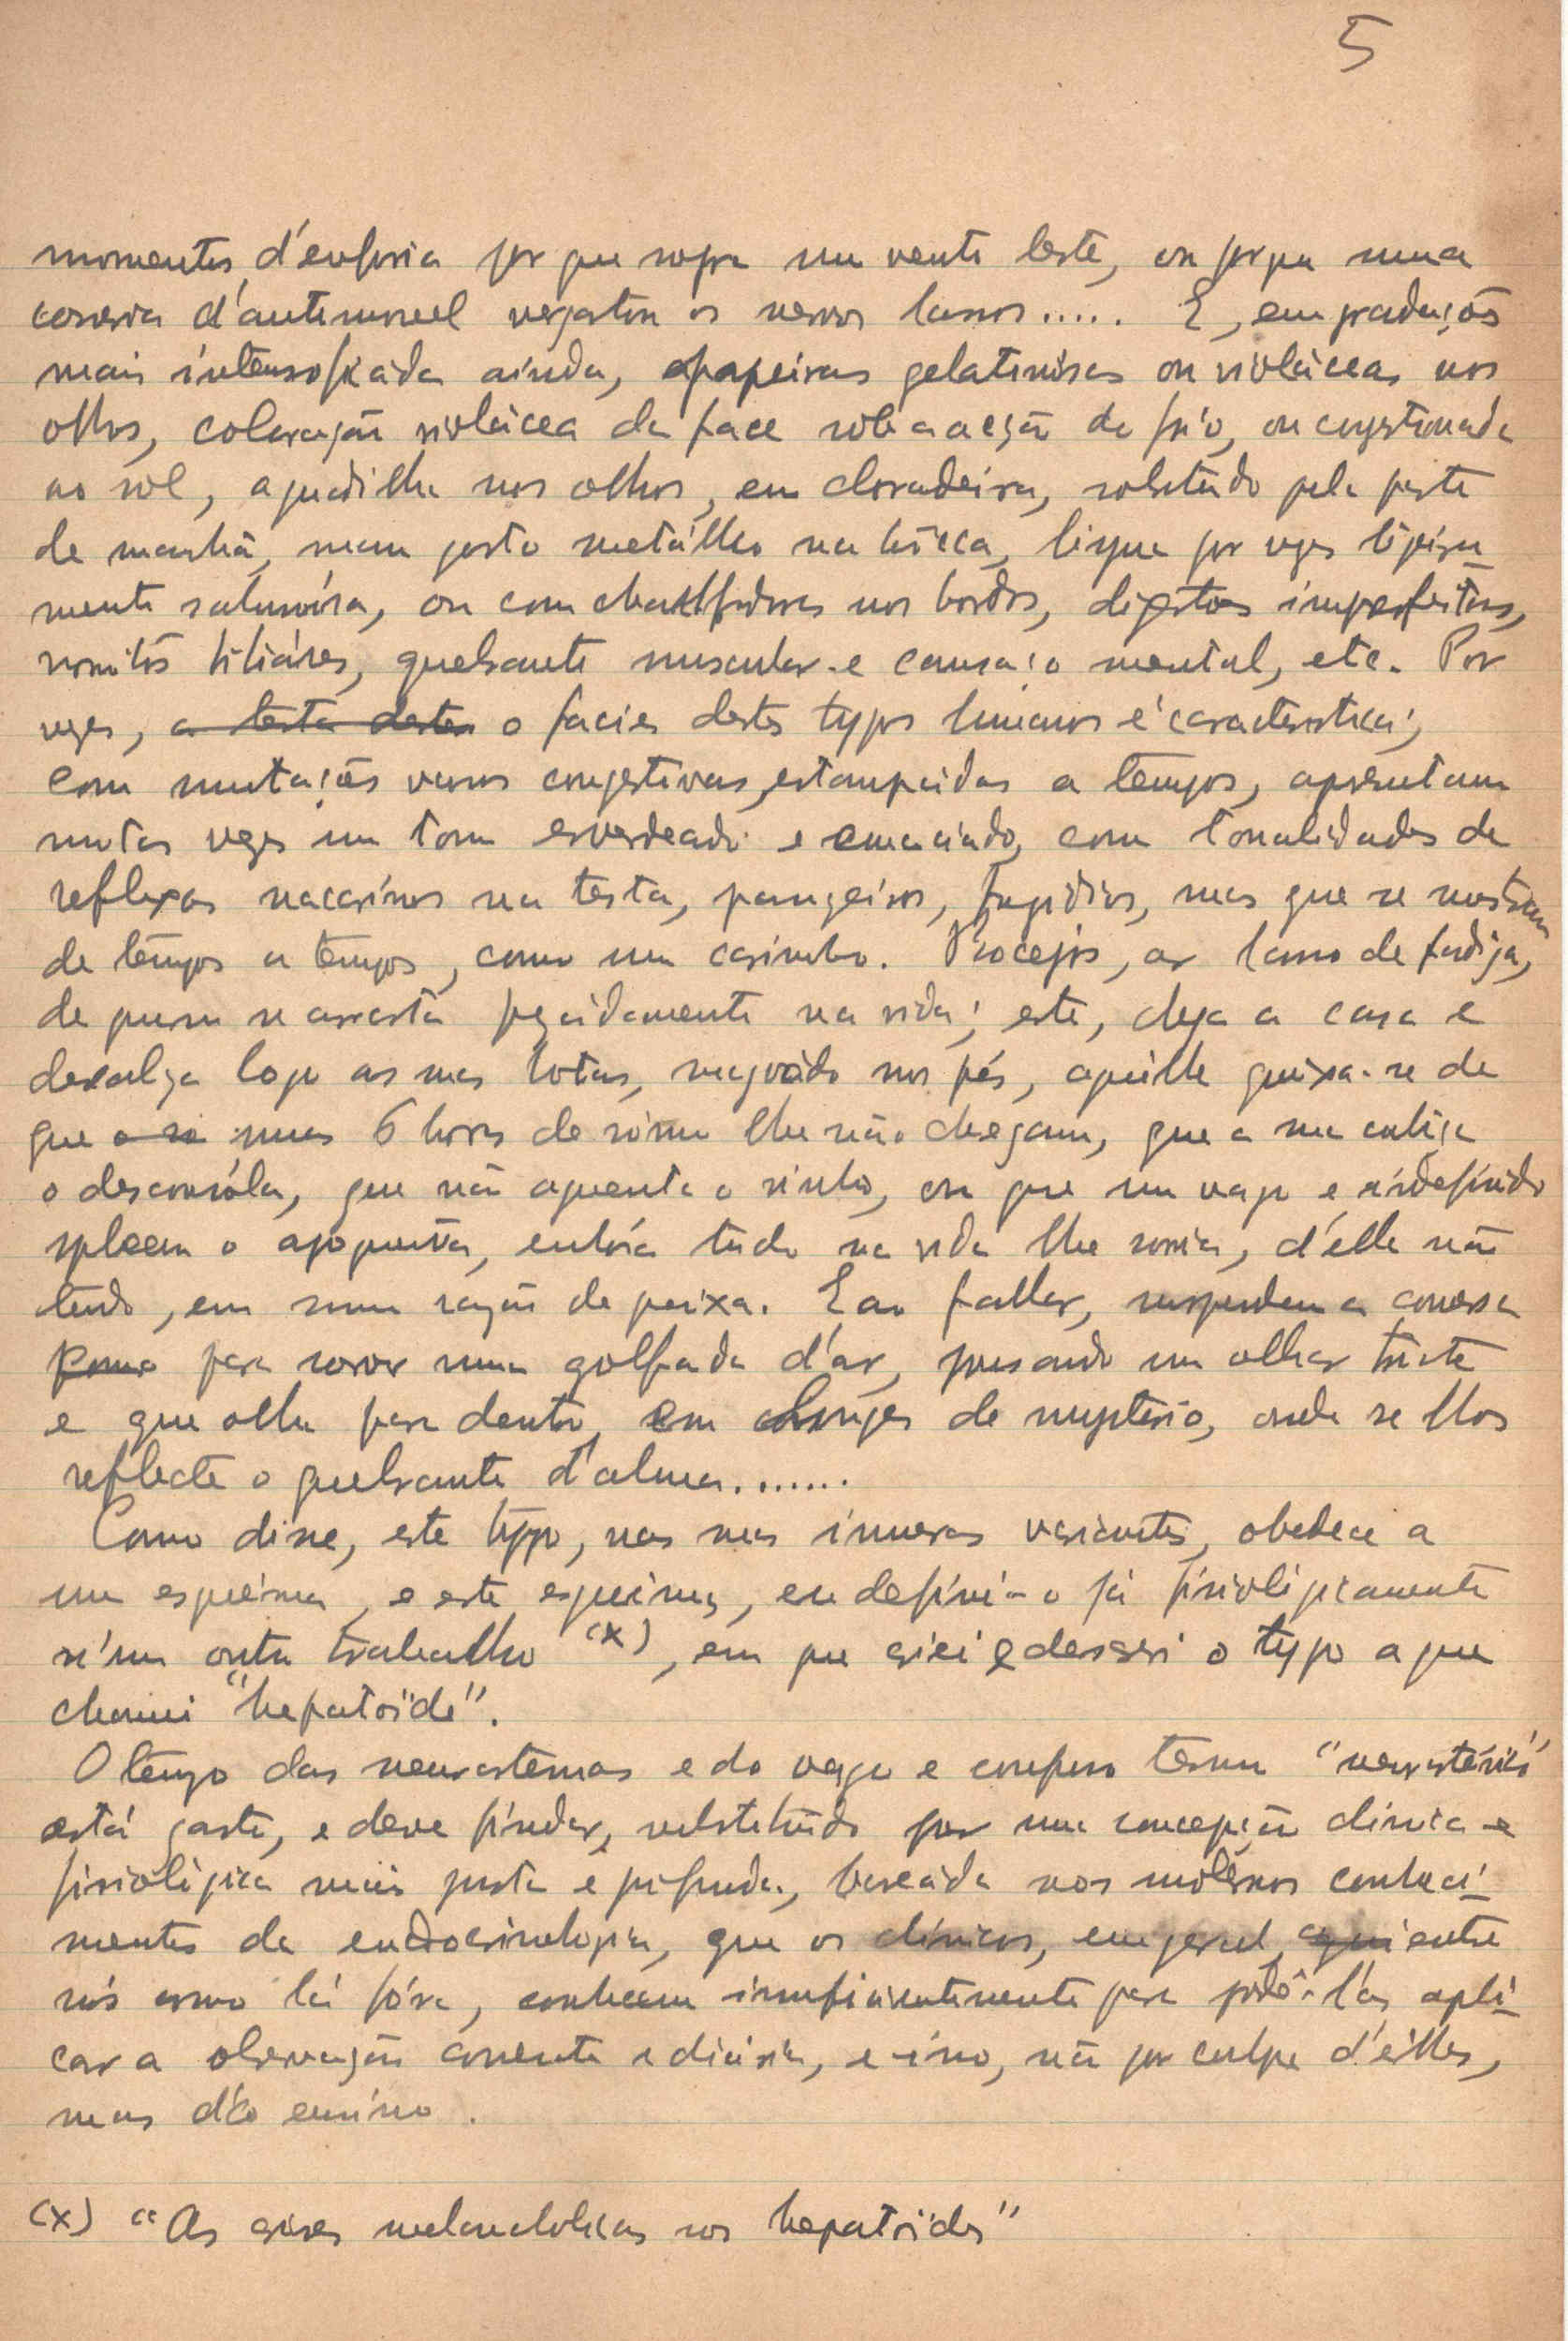 5
momentos d'euforia por que sopra um vento leste, ou porque uma
correria d'automovel vergastou os nervos lassos..... E, em gradações
mais intensificada ainda, papeiras gelatinosas ou violáceas nos
olhos, coloração violácea da face sob a acção do frio, ou congestionada
ao sol, a quadilha nos olhos, em cloradeira, sobretudo pela parte
de manhã, mau gosto metállico na bôcca, lingua por vezes ligeira-
mente saburrósa, ou com nos bordos, digestões imperfeitas,
vomitos biliáres, quebranto muscular e cansaço mental, etc. Por
vezes, a testa destes o facies destes typos humanos é caracteristica;
com mutações vaso congestivas, estampadas a tempos, apresentam
muitas vezes um tom esverdeado e emaciado, com tonalidades de
reflexos nacarinos na testa, passageiros, fugidios, mas que se mostram
de tempos a tempos, como um carimbo. Bocejos, ar lasso de fadiga,
de quem se arrasta pezadamente na vida; este, chega a casa e
descalça logo as suas botas, magoado nos pés, aquelle queixa-se de
que o se umas 6 horas de sôno lhe não chegam, que a sua
o desconsóla, que não aguenta o vinho, ou que um vago e indefinido
spleen o apoquenta, embóra tudo na vida lhe sorria, d'élla não
tendo, em suma razão de queixa. E ao fallar, suspendem a conversa
como para sorver uma golfada d'ar, pousando um olhar triste
e que olha para dentro, em longes de mysterio, onde se lhes
reflecte o quebranto d'alma.......
Como disse, este typo, nas suas inumeras variantes, obedece a
um esquêma, e este esquema, eu defini-o já fisiologicamente
n'um outro trabalho (x), em que criei e descrevi o typo a que
chamei "hepatoïde".
O tempo das neurastenias e do vago e confuso termo "neurasténico"
está gasto, e deve findar, substituido por uma concepção clinica e
fisiológica mais justa e profunda, baseáda nos modérnos conheci-
mentos da endocrinologia, que os clínicos, em geral, aqui entre
nós como lá fóra, conhecem insuficientemente para podê-los apli-
car a observação corrente e diária, e isso, não por culpa d'élles,
mas do ensino.
(x) "As crises melancholicas nos hepatoïdes"